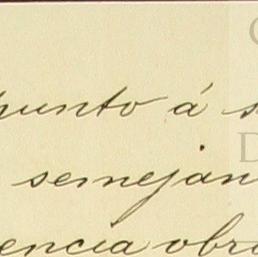 punto á s
semejan
encia obr